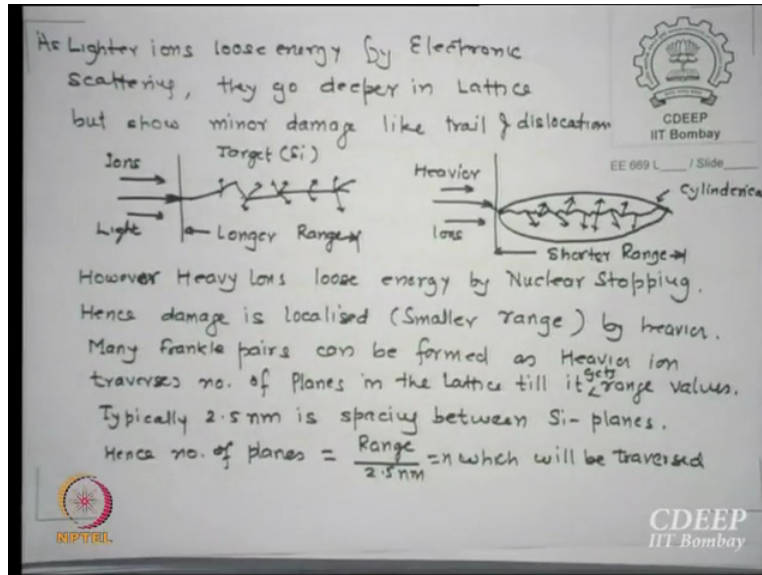 As Lighter ions loose energy by Electronic
Scattering, they go deeper in Lattice
but show minor damage like trail of dislocation
CDEEP
IIT Bombay
EE 669 L____ / Slide____
Ions
Target (Si)
Light
Longer Range
Heavier
Cylinderica
Ions
Shorter Range
However Heavy Ions loose energy by Nuclear Stopping.
Hence damage is localised (Smaller range) by heavier.
Many Frankle pairs can be formed as Heavier ion
traverses no. of Planes in the lattice till it gets range values.
Typically 2.5nm is spacing between Si- planes.
Hence no. of planes = Range / 2.5nm = n which will be traversed
NPTEL
CDEEP
IIT Bombay